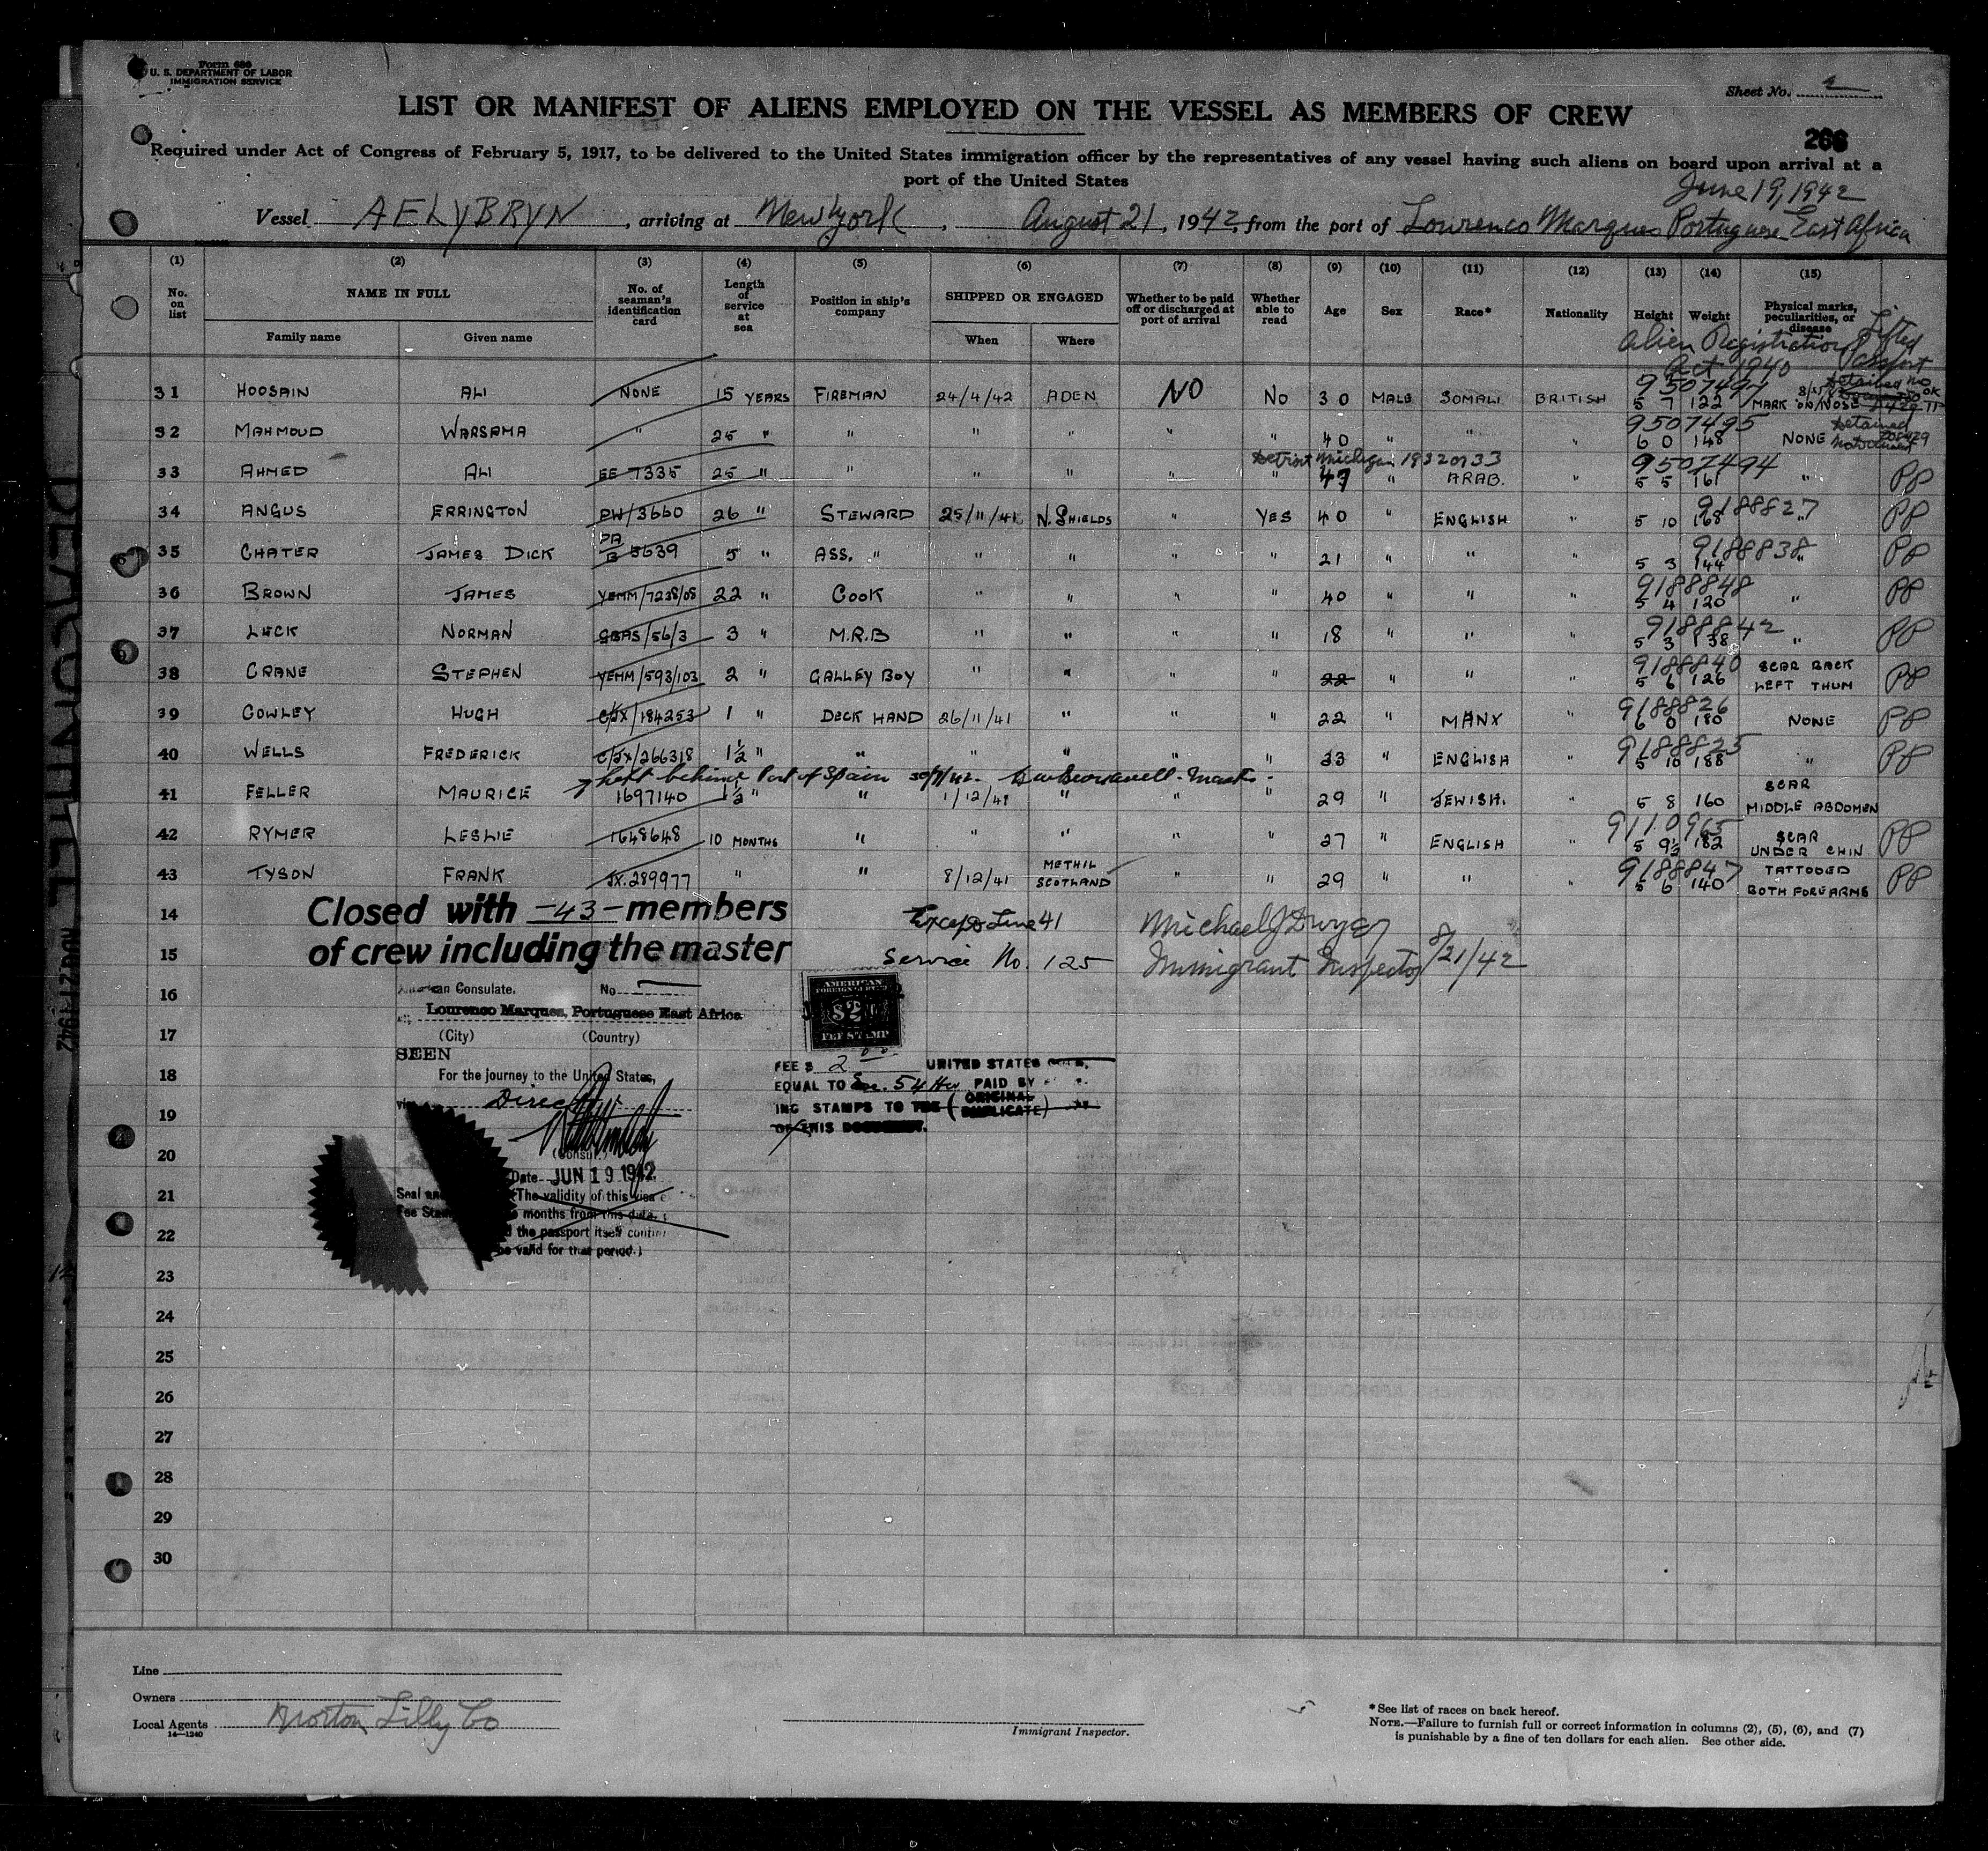 Form 689
U. S. DEPARTMENT OF LABOR
IMMIGRATION SERVICE
Sheet No.
LIST OR MANIFEST OF ALIENS EMPLOYED ON THE VESSEL AS MEMBERS OF CREW
266
Required under Act of Congress of February 5, 1917, to be delivered to the United States immigration officer by the representatives of any vessel having such aliens on board upon arrival at a
port of the United States
June 19, 1942
Vessel AELYBRYN, arriving at New York, August 21, 1942, from the port of Lourenco Marques Portuguese East Africa
(1) (2) (3) (4) (5) (6) (7) (8) (9) (10) (11) (12) (13) (14) (15)
No. on list NAME IN FULL Family name Given name No. of seaman's identification card Length of service at sea Position in ship's company SHIPPED OR ENGAGED When Where Whether to be paid off or discharged at port of arrival Whether able to read Age Sex Race* Nationality Height Weight Physical marks, peculiarities, or disease
Alien Registration Act 1940 Lifted Passport
31 HOOSAIN ALI NONE 15 YEARS FIREMAN 24/4/42 ADEN NO No 30 MALE SOMALI BRITISH 9507497 5 7 122 MARK ON NOSE
32 MAHMOUD WARSAMA " 25 " " " " " " 40 " " " 9507495 6 0 148 NONE Detained
Detroit Michigan 1932 or 33
33 AHMED ALI EE 7335 25 " " " " " " 47 " ARAB. " 9507494 5 5 161 " PP
34 ANGUS ERRINGTON PW/3660 26 " STEWARD 25/11/41 N. SHIELDS " YES 40 " ENGLISH " 9188827 5 10 168 " PP
35 CHATER JAMES DICK PA B 5639 5 " ASS. " " " " " 21 " " " 9188838 5 3 144 " PP
36 BROWN JAMES YEMM/7238/08 22 " COOK " " " " 40 " " " 9188848 5 4 120 " PP
37 LUCK NORMAN GBAS/56/3 3 " M.R.B " " " " 18 " " " 9188842 5 3 138 " PP
38 CRANE STEPHEN YEMM/593/103 2 " GALLEY BOY " " " " 22 " " " 9188840 5 6 126 SCAR BACK LEFT THUM PP
39 COWLEY HUGH C/JX/184253 1 " DECK HAND 26/11/41 " " " 22 " MANX " 9188826 6 0 180 NONE PP
40 WELLS FREDERICK C/JX/266318 1½ " " " " " " 33 " ENGLISH " 9188825 5 10 188 " PP
Left behind Port of Spain 30/7/42.
41 FELLER MAURICE 1697140 1½ " " 1/12/41 " " " 29 " JEWISH. 5 8 160 SCAR MIDDLE ABDOMEN
42 RYMER LESLIE 1648648 10 MONTHS " " " " " 27 " ENGLISH " 9110965 5 9½ 182 SCAR UNDER CHIN PP
43 TYSON FRANK JX.289977 " " 8/12/41 METHIL SCOTLAND " " 29 " " " 9188847 5 6 140 TATTOOED BOTH FOREARMS PP
14 Closed with -43- members Except Line 41 Michael J Dwyer
15 of crew including the master Service No. 125 Immigrant Inspector 8/21/42
16 American Consulate. No
Lourenco Marques, Portuguese East Africa
17 (City) (Country)
AMERICAN FOREIGN SERVICE $2 FEE STAMP
SEEN
18 For the journey to the United States,
FEE $ 2.00 UNITED STATES
EQUAL TO Esc. 54 PAID BY
19 Direct
ING STAMPS TO THE (ORIGINAL DUPLICATE)
OF THIS DOCUMENT.
20 (Consul.)
Date JUN 19 1942
21 Seal and The validity of this visa
Fee Stamp months from this date,
22 the passport itself
be valid for that period.)
23
24
25
26
27
28
29
30
Line
Owners
Local Agents Norton Lilly Co
14—1240
Immigrant Inspector.
* See list of races on back hereof.
NOTE.—Failure to furnish full or correct information in columns (2), (5), (6), and (7)
is punishable by a fine of ten dollars for each alien. See other side.